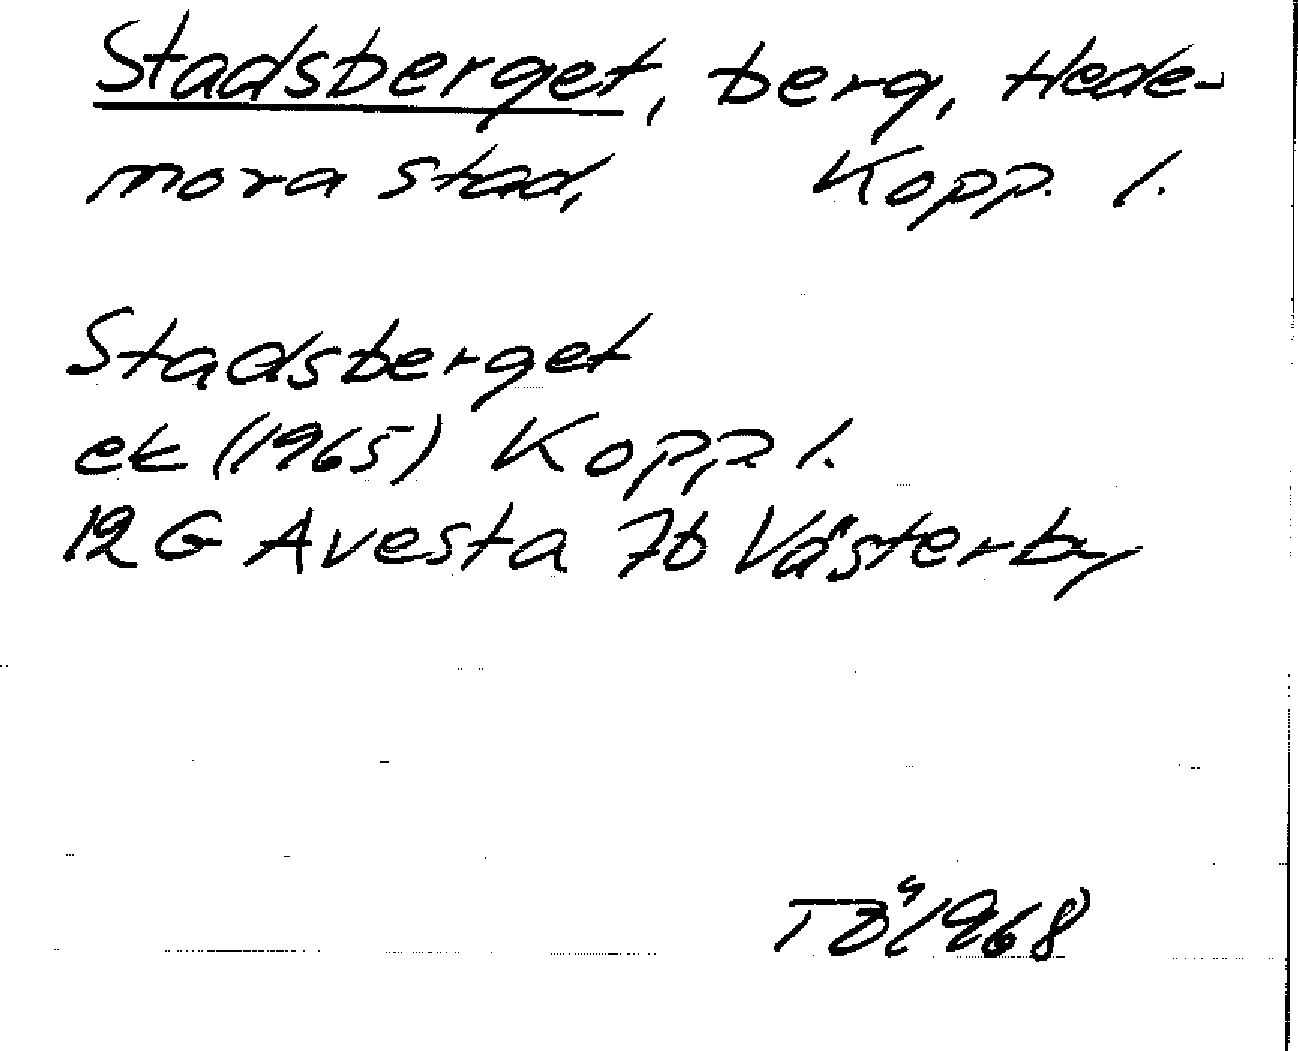 Stadsberget, berg, Hede-
mora stad, Kopp. l.
Stadsberget
ek (1965) Kopp l.
12 G Avesta 7b Västerby
TÖ 1968